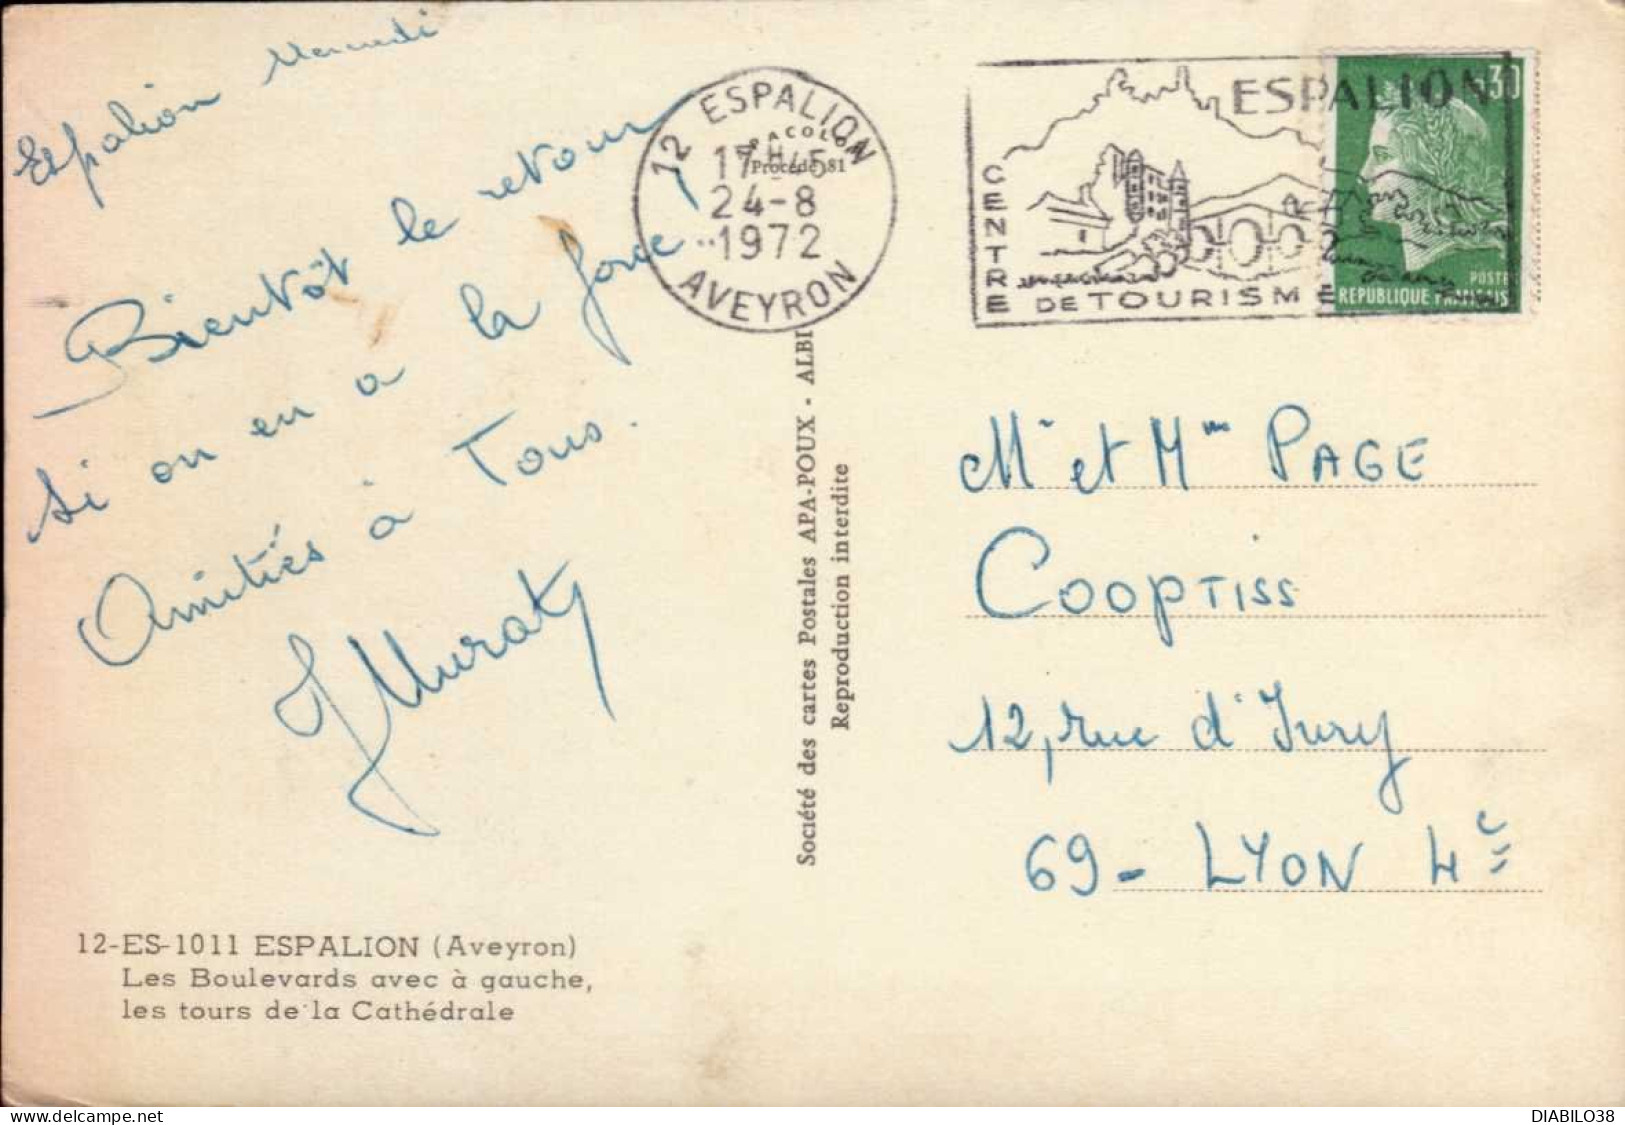 Espalion Mercredi
Bientôt le retour,
si on en a la force,
Amitiés à Tous.
J Muraty
12-ES-1011 ESPALION (Aveyron)
Les Boulevards avec à gauche,
les tours de la Cathédrale
12 ESPALION
17H45
24-8
1972
AVEYRON
Procédé 81
Société des cartes Postales APA-POUX - ALBI
Reproduction interdite
ESPALION
CENTRE
DE TOURISME
0,30
POSTES
REPUBLIQUE FRANÇAISE
Mr et Mme PAGE
COOPTISS
12, rue d'Ivry
69 - LYON 4e
DIABILO38